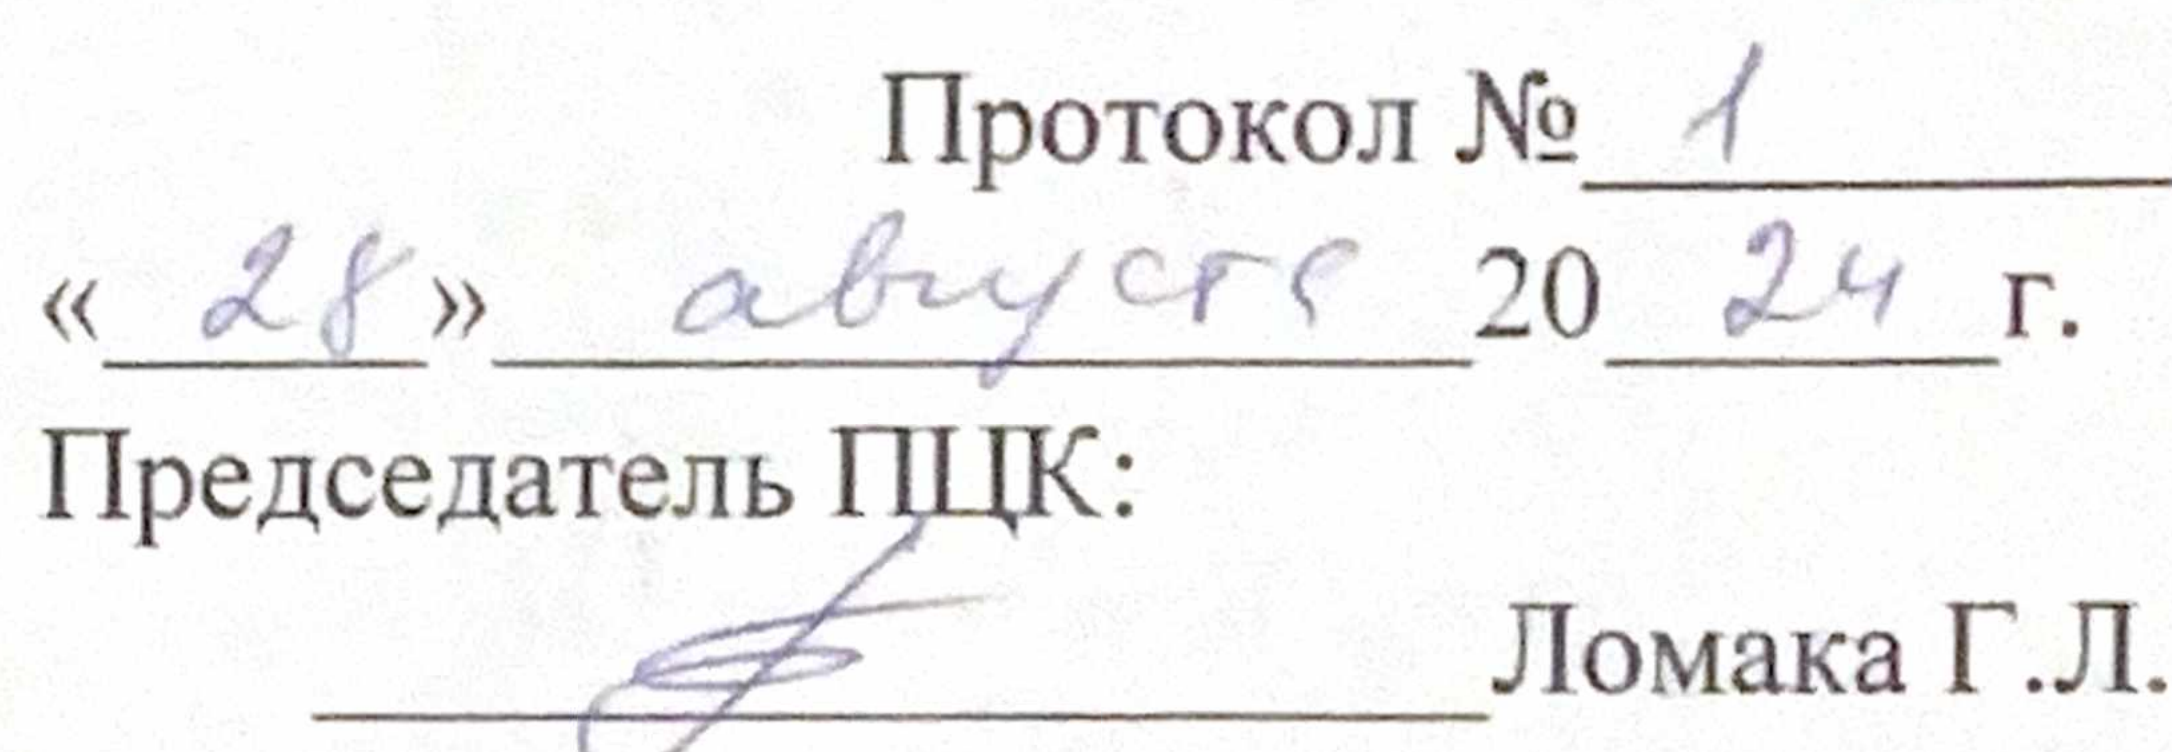 Протокол № 1
« 28 » августа 20 24 г.
Председатель ПЦК:
Ломака Г.Л.